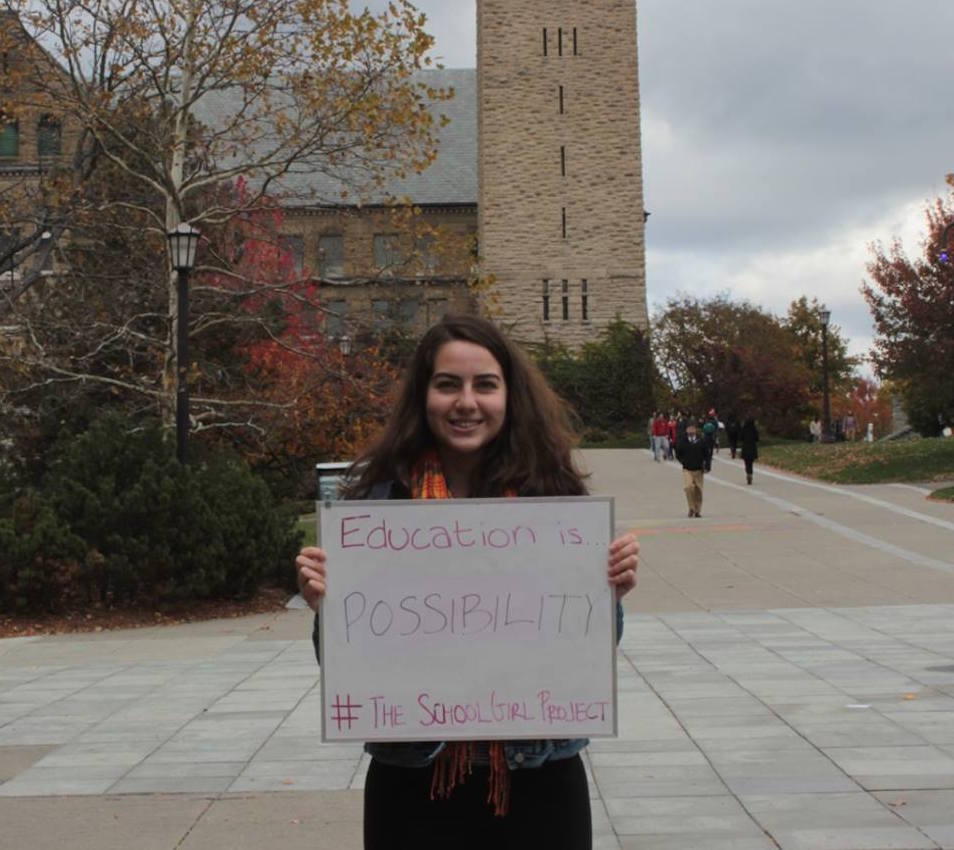 Education is...
POSSIBILITY
# THE SCHOOLGIRL PROJECT